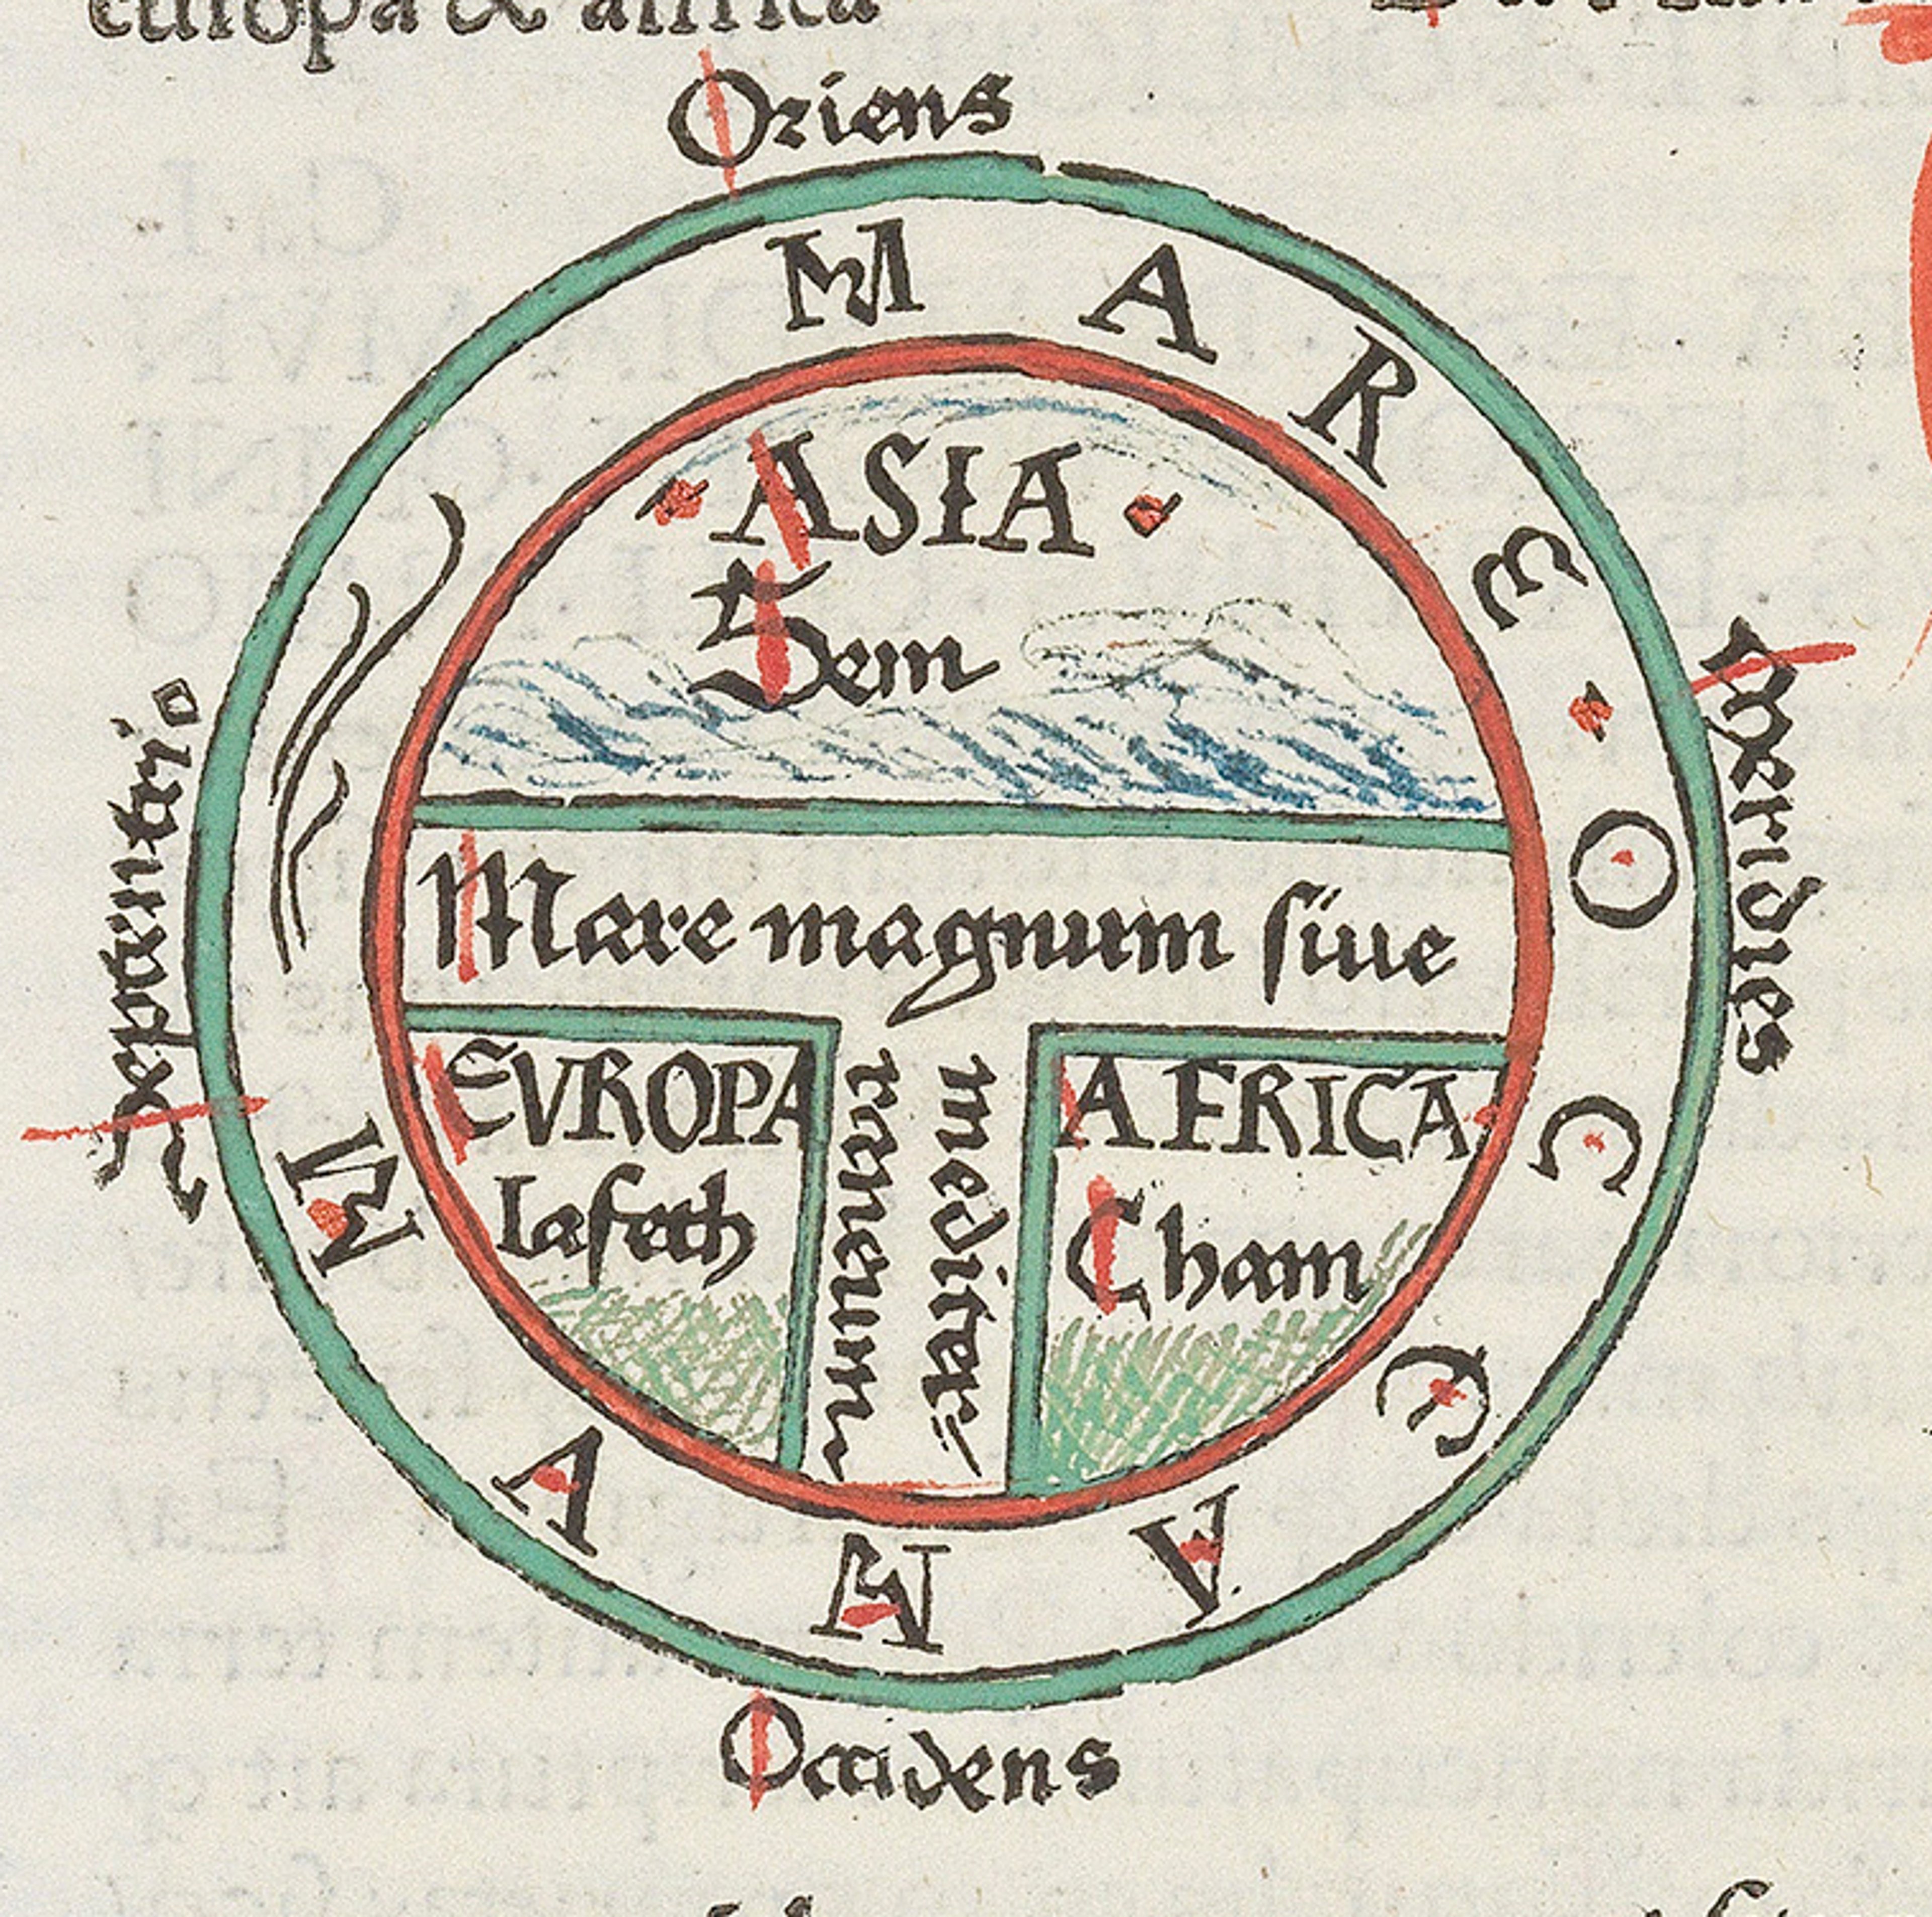 europa & affrica
Oriens
MARE · OCEANVM
Septentrio
Meridies
· ASIA ·
Sem
Mare magnum siue
mediter=
raneum
EVROPA
Iafeth
AFRICA
Cham
Occidens